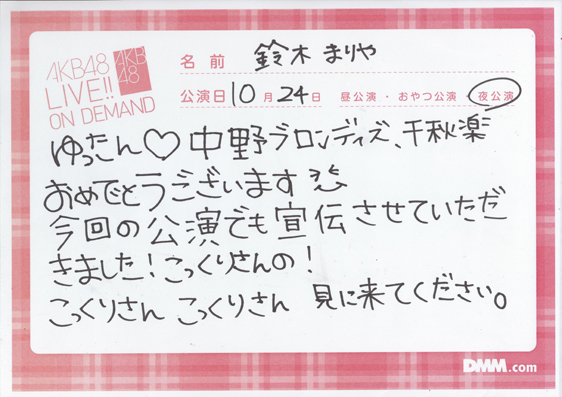 AKB48
LIVE!!
ON DEMAND
AKB
48
名前 鈴木まりや
公演日 10月24日 昼公演・おやつ公演 夜公演
ゆったん♡中野ブロンディズ、千秋楽
おめでとうございます
今回の公演でも宣伝させていただ
きました!こっくりさんの!
こっくりさん こっくりさん 見に来てください。
DMM.com